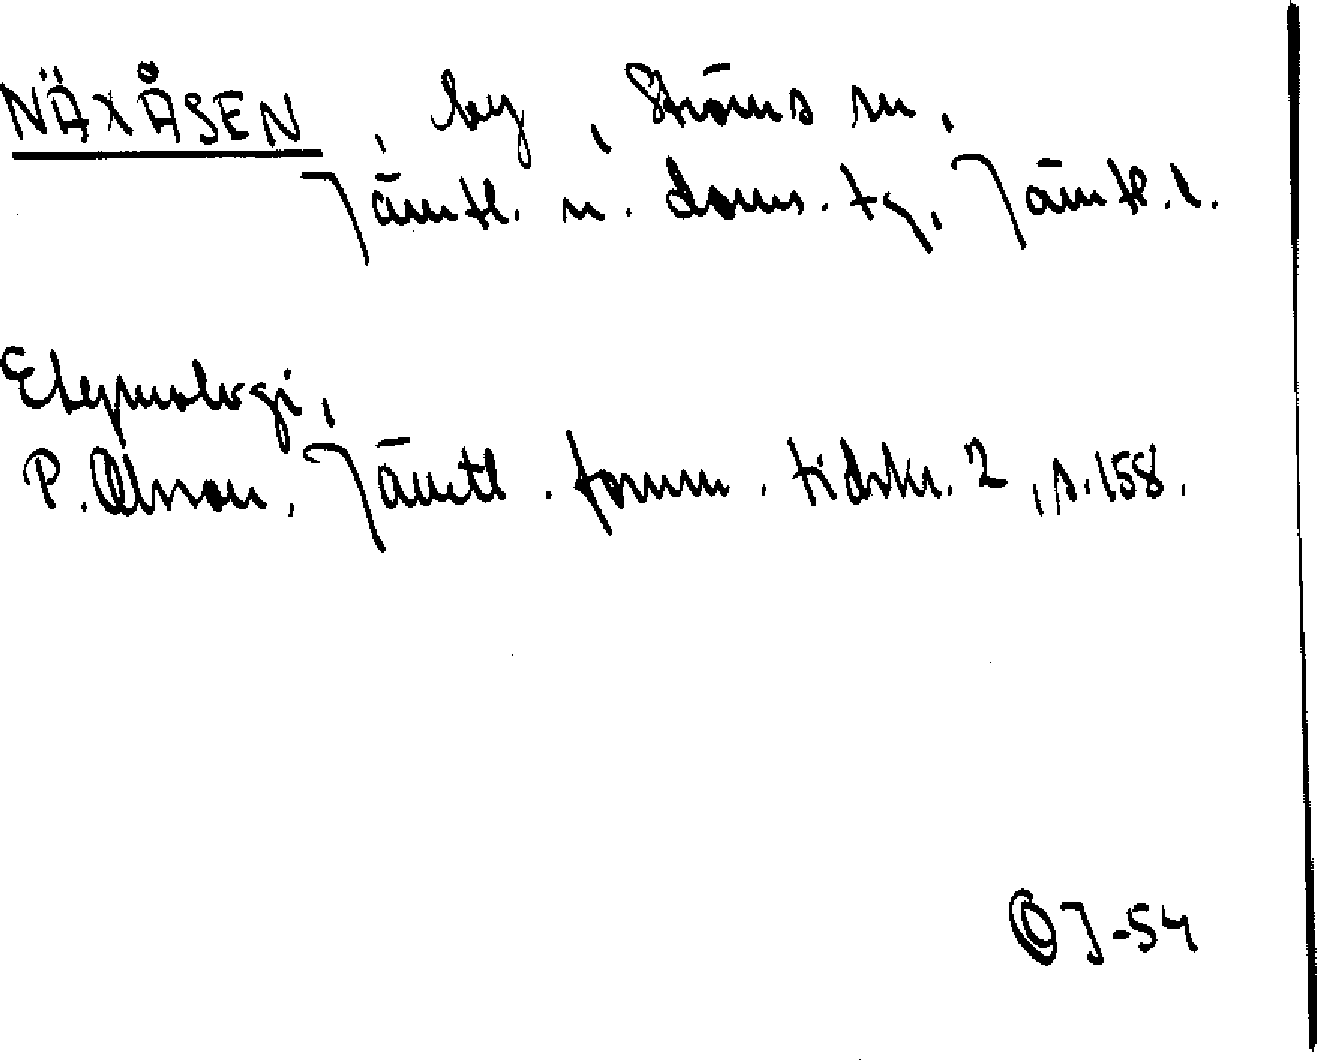 NÄXÅSEN, by, Ströms sn,
Jämtl. n. doms. tg, Jämtl. l.
Etymologi,
P. Olsson, Jämtl. fornm. tidskr. 2, s. 158.
OJ-54